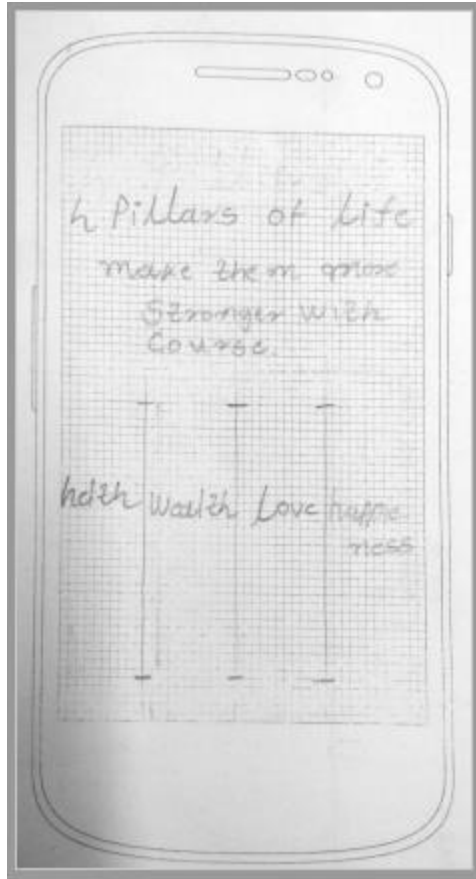 4 Pillars of Life
make them more
Stronger with
Course.
helth Wealth Love happie
ness